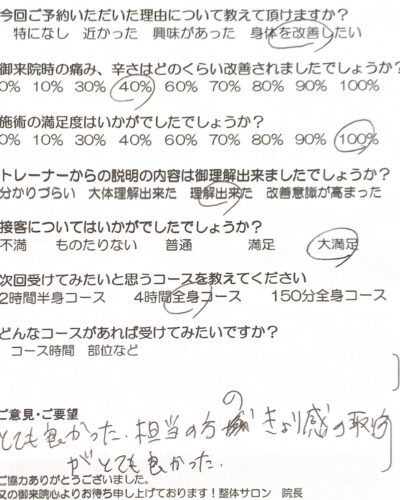 今回ご予約いただいた理由について教えて頂けますか?
特になし 近かった 興味があった 身体を改善したい
御来院時の痛み、辛さはどのくらい改善されましたでしょうか?
0% 10% 30% 40% 60% 70% 80% 90% 100%
施術の満足度はいかがでしたでしょうか?
0% 10% 30% 40% 60% 70% 80% 90% 100%
トレーナーからの説明の内容は御理解出来ましたでしょうか?
分かりづらい 大体理解出来た 理解出来た 改善意識が高まった
接客についてはいかがでしたでしょうか?
不満 ものたりない 普通 満足 大満足
次回受けてみたいと思うコースを教えてください
2時間半身コース 4時間全身コース 150分全身コース
どんなコースがあれば受けてみたいですか?
コース時間 部位など
ご意見・ご要望
とても良かった.担当の方の きょり感の取り方
がとても良かった.
ご協力ありがとうございました。
又の御来院心よりお待ち申し上げております!整体サロン 院長